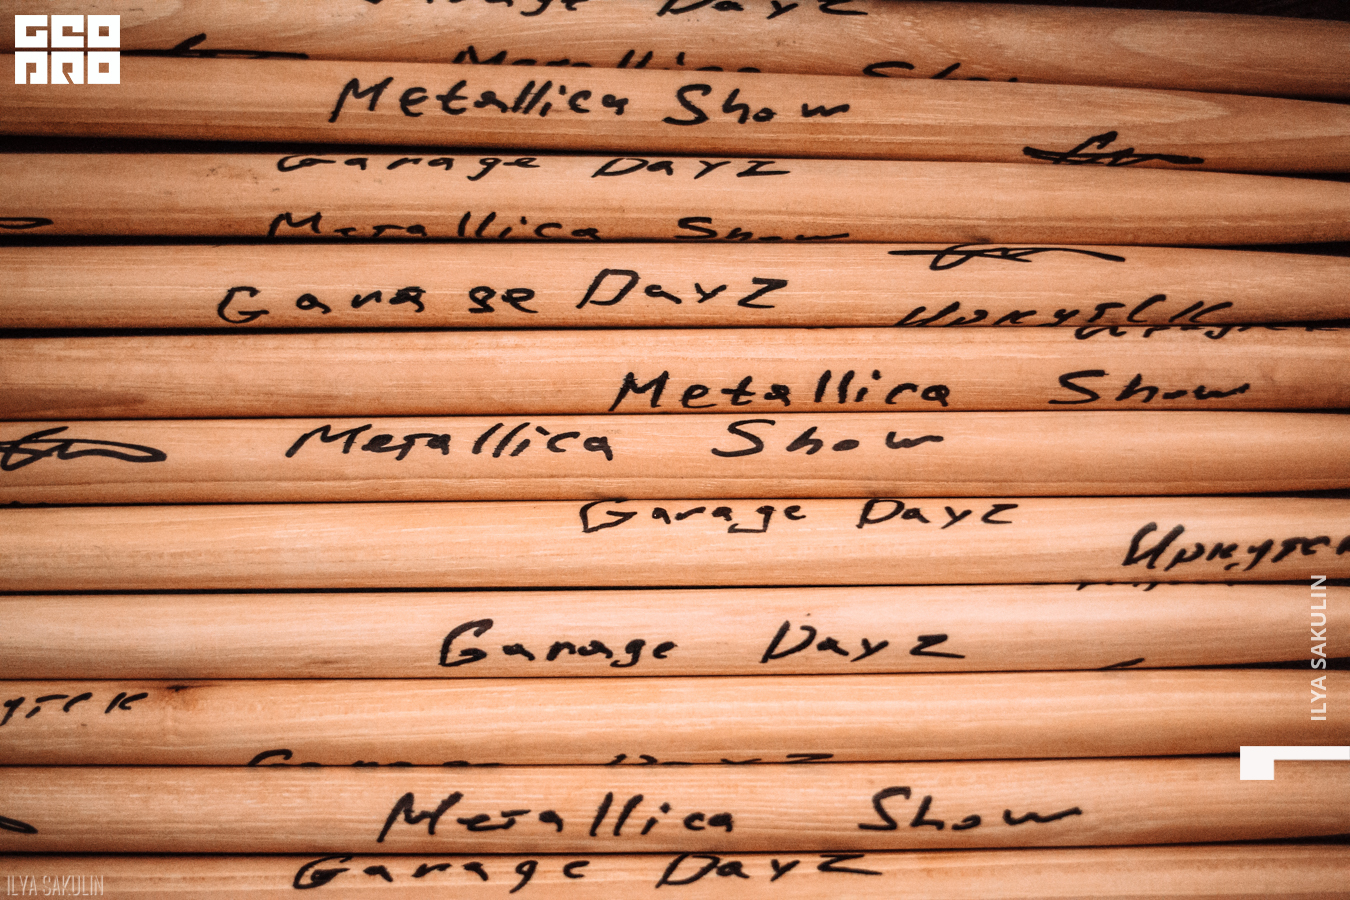 GEO
PRO
Garage DayZ
Metallica Show
Metallica Show
Garage DayZ
Metallica Show
Garage DayZ
Иркутск
Metallica Show
Metallica Show
Garage DayZ
Иркутск
Garage DayZ
ILYA SAKULIN
Garage DayZ
Metallica Show
Garage DayZ
ILYA SAKULIN